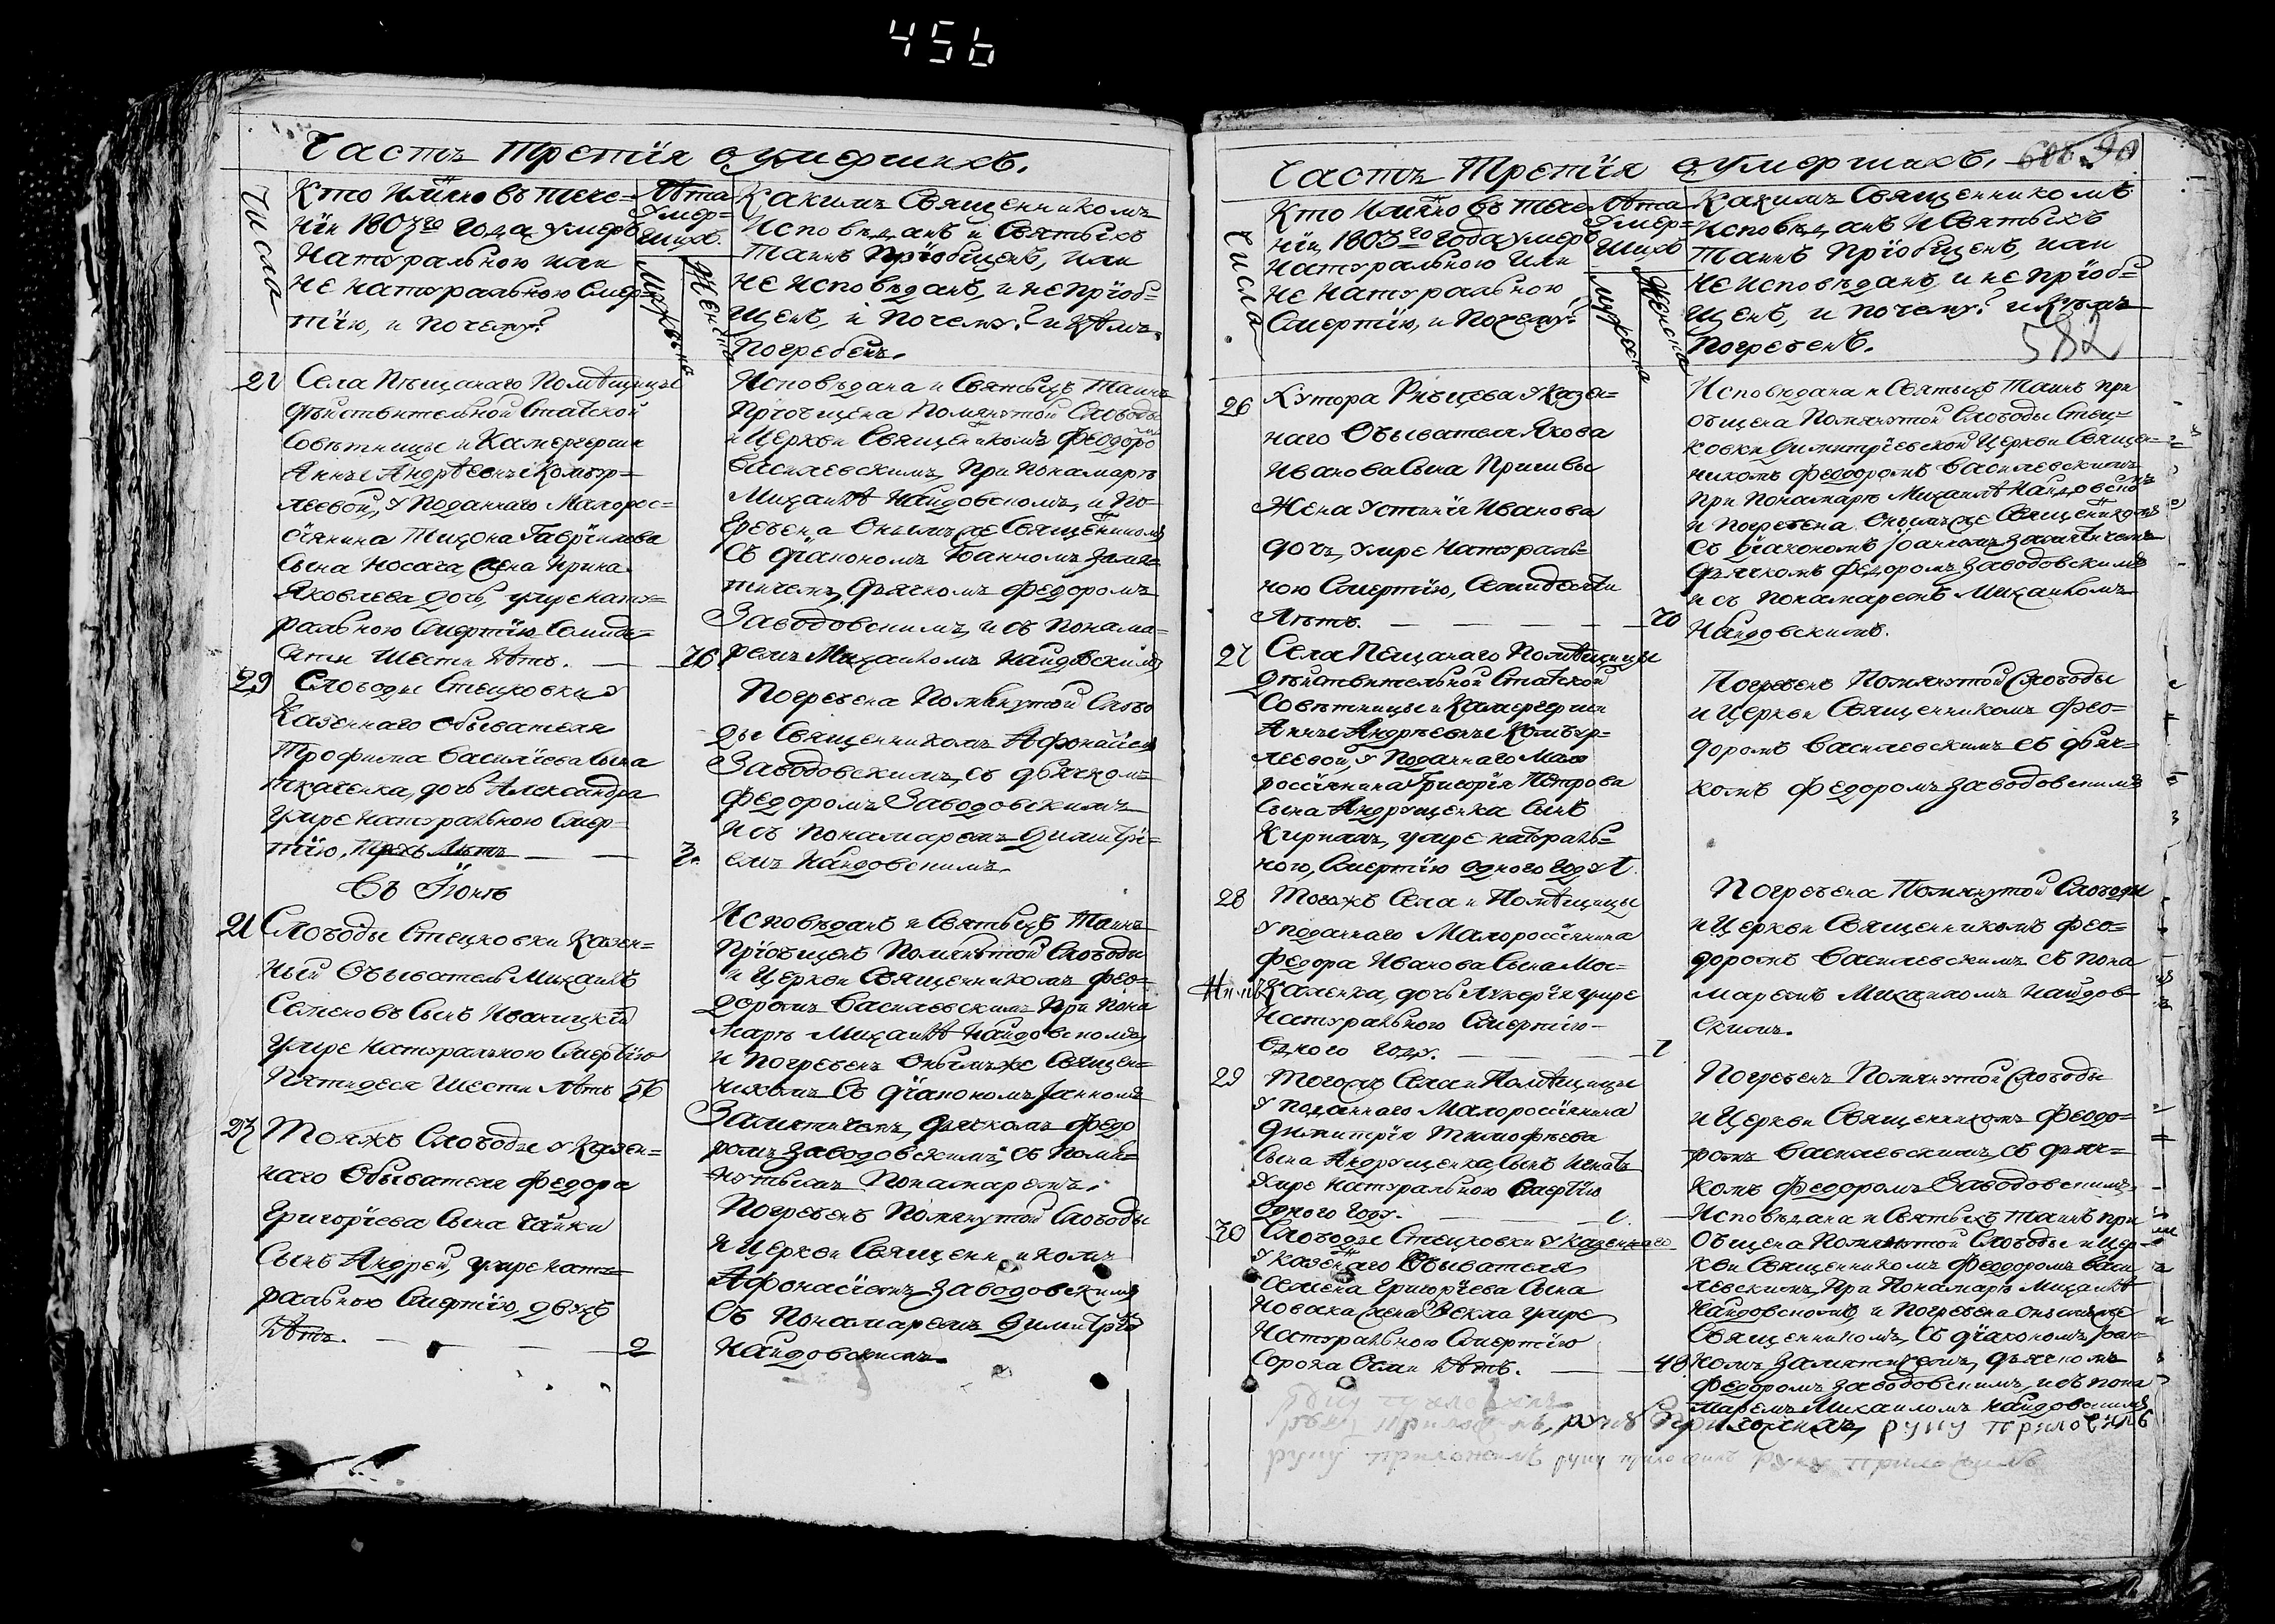 456
Часть Третїя о умершихъ.
Числа
Кто имянно въ тече=
нїи 1803го года умеръ
натуральною или
не натуральною смер=
тїю, и почему?
Лѣта
умер=
шихъ.
Мужеска
Женска
Какимъ Священникомъ
исповѣданъ и Святыхъ
Таинъ прїобщенъ, или
не исповѣданъ, и не прїоб=
щенъ, и почему? и кѣмъ
погребенъ.
Села Пещанаго Помѣщицы
дѣйствительной Статской
Совѣтницы и Камергерши
Анны Андрѣевны Комбур=
леевой, у поданнаго Малорос=
сїянина Тихона Гаврїилова
сына Носача, жена Ирина
Яковлева дочь, умре нату=
ральною смертїю семиде=
сяти шести лѣтъ. 76
Исповѣдана и Святыхъ Таинъ
прїобщена помянутой Слободы
и Церкви Священникомъ Феодоро
Василевскимъ при понамарѣ
Михаилѣ Найдовскомъ, и по=
гребена онымже Священникомъ
съ дїакономъ Їоанномъ Замя=
тичемъ, дьячкомъ Федоромъ
Заводовскимъ, и съ понама=
ремъ Михаиломъ Найдовскимъ
29
Слободы Стецковки у
казеннаго обывателя
Трофима Василїева сына
Ткаченка, дочь Александра
умре натуральною смер=
тїю, трехъ лѣтъ 3.
Погребена помянутой Слобо
ды Священникомъ Афонасїемъ
Заводовскимъ, съ дьячкомъ
Федоромъ Заводовскимъ
и съ понамаремъ Димитрї=
емъ Найдовскимъ.
Въ Їюнѣ
21
Слободы Стецковки казен=
ный обыватель Михаилъ
Семеновъ сынъ Иваницкїй
умре натуральною смертїю
пятидеся шести лѣтъ 56
Исповѣданъ и Святыхъ Таинъ
прїобщенъ помянутой Слободы
и Церкви Священникомъ Фео=
доромъ Василевскимъ при пона
марѣ Михаилѣ Найдовскомъ,
и погребенъ онымже Священ=
никомъ съ дїакономъ Їанномъ
Замятичемъ, дьячкомъ Федо
ромъ Заводовскимъ, съ помя=
нутымъ понамаремъ.
23
Тояжъ Слободы у казен=
наго обывателя Федора
Григорїева сына Чайки
сынъ Андрей, умре нату=
ральною смертїю, двухъ
лѣтъ. 2
Погребенъ помянутой Слободы
и Церкви Священникомъ
Афонасїемъ Заводовскимъ
съ понамаремъ Димитрїемъ
Найдовскимъ.
Часть Третїя о умершихъ.
90
Числа
Кто имянно въ тече
нїи 1803го года умеръ
натуральною или
не натуральною
смертїю, и почему?
Лѣта
умер=
шихъ
мужеска
женска
Какимъ Священникомъ
исповѣданъ и Святыхъ
Таинъ прїобщенъ, или
не исповѣданъ, и не прїоб=
щенъ, и почему? и кѣмъ
погребенъ.
582
26
Хутора Рибцева у казен=
наго обывателя Якова
Иванова сына
жена Устинїя Иванова
дочь, умре натураль=
ною смертїю, семидесяти
лѣтъ. 70
Исповѣдана и Святыхъ Таинъ при
общена помянутой Слободы Стец=
ковки Димитрїевской Церкви Священ=
никомъ Феодоромъ Василевскимъ
при понамарѣ Михаилѣ Найдовском
и погребена онымже Священникомъ
съ дїакономъ Їоанномъ Замятичемъ
дьячкомъ Федоромъ Заводовскимъ
и съ понамаремъ Михаиломъ
Найдовскимъ.
27
Села Пещанаго Помѣщицы
дѣйствительной Статской
Совѣтницы и Камергерши
Анны Андрѣевны Комбур=
леевой, у поданнаго Мало
россїянина Григорїя Петрова
сына Андрущенка сынъ
Кирилъ, умре натураль=
ною, смертїю одного году 1.
Погребенъ помянутой Слободы
и Церкви Священникомъ Фео=
доромъ Василевскимъ съ дьяч=
комъ Федоромъ Заводовскимъ
28
Тогожъ Села и Помѣщицы
у поданнаго Малороссїянина
Федора Иванова сына Мос=
каленка, дочь Лукерїя умре
натуральною смертїю
одного году. 1
Погребена помянутой Слободы
и Церкви Священникомъ Фео=
доромъ Василевскимъ съ пона
маремъ Михаиломъ Найдов=
скимъ.
29
Тогожъ Села и Помѣщицы
у поданнаго Малороссїянина
Димитрїя Тимофѣева
сына Андрущенка сынъ Игнатъ
умре натуральною смертїю
одного году. 1.
Погребенъ помянутой Слободы
и Церкви Священникомъ Феодо=
ромъ Василевскимъ, съ дьяч=
комъ Федоромъ Заводовскимъ
30
Слободы Стецковки у казеннаго
у казеннаго обывателя
Семена Григорїева сына
Новака жена Векла умре
натуральною смертїю
сорока осми лѣтъ. 48
Исповѣдана и Святыхъ Таинъ при
общена помянутой Слободы и цер=
кви Священникомъ Феодоромъ Васи
левскимъ, при понамарѣ Михаилѣ
Найдовскомъ, и погребена онымже
Священникомъ, съ дїакономъ Їоан=
номъ Замятичемъ, дьячкомъ
Федоромъ Заводовскимъ, и съ пона
маремъ Михаиломъ Найдовскимъ
руку приложилъ
руку приложилъ руку приложилъ руку приложилъ